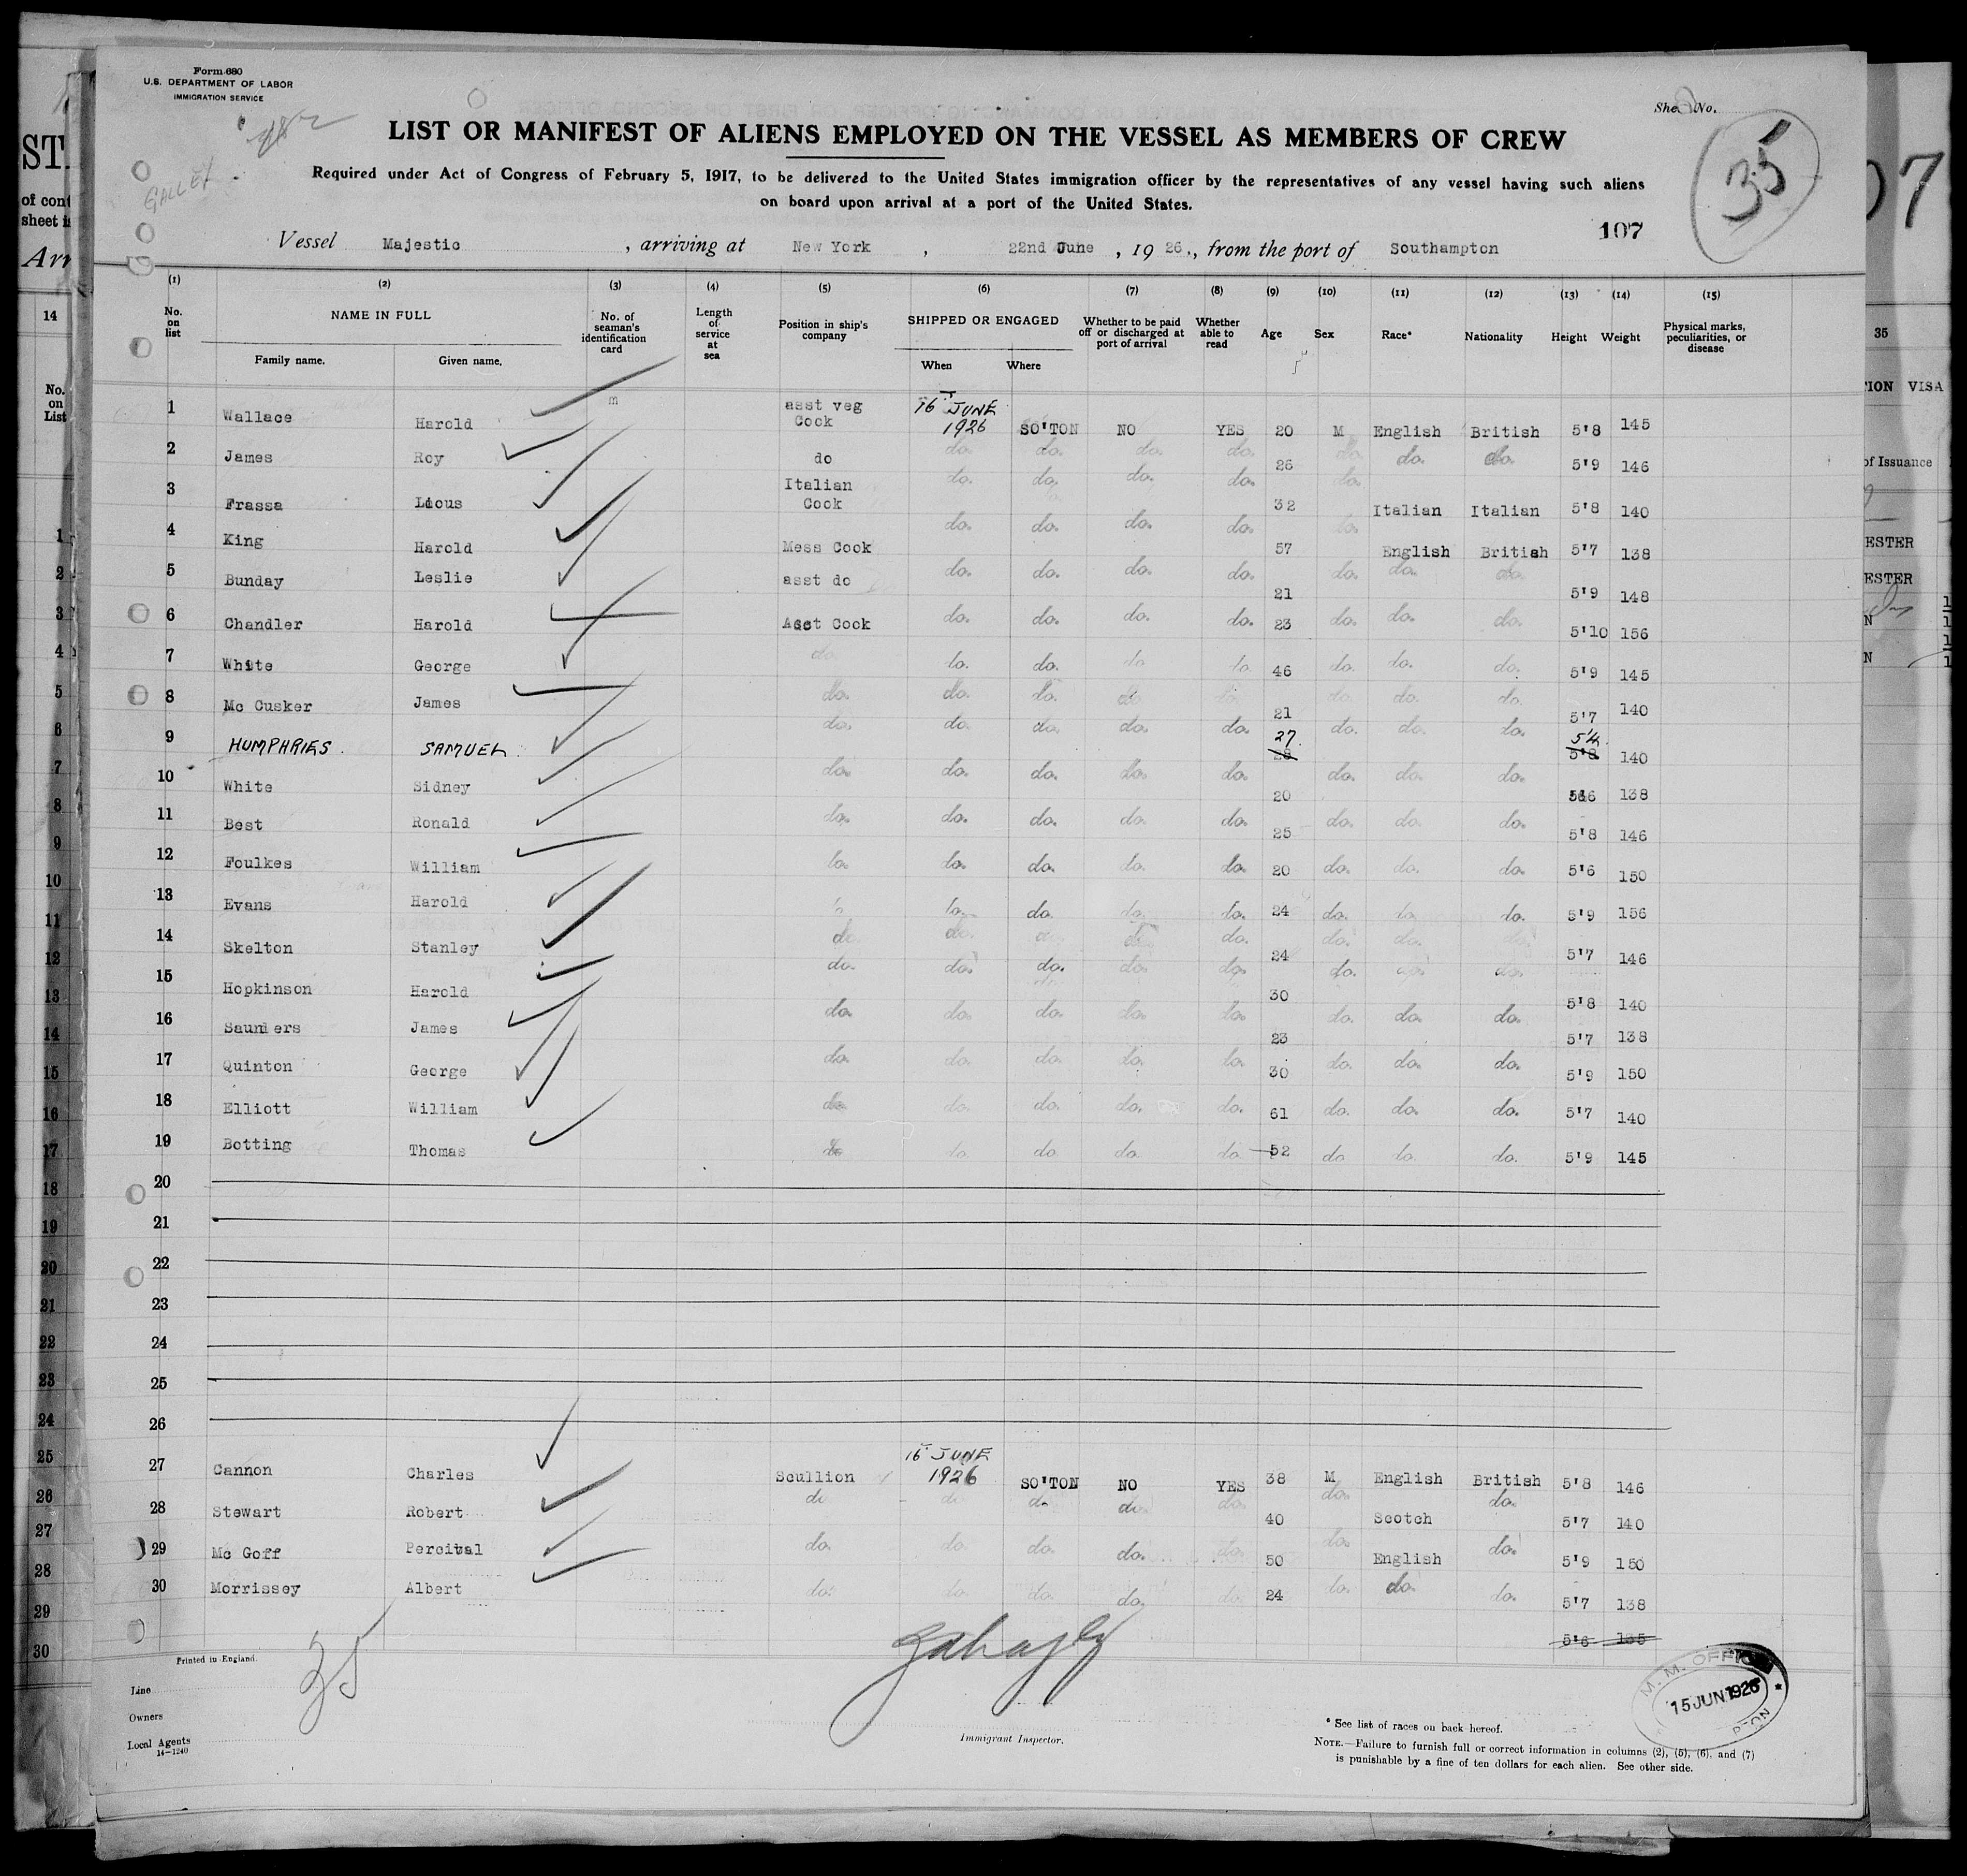 Form 680
U.S. DEPARTMENT OF LABOR
IMMIGRATION SERVICE
GALLEY
Sheet No.
35
LIST OR MANIFEST OF ALIENS EMPLOYED ON THE VESSEL AS MEMBERS OF CREW
Required under Act of Congress of February 5, 1917, to be delivered to the United States immigration officer by the representatives of any vessel having such aliens
on board upon arrival at a port of the United States.
107
Vessel Majestic, arriving at New York, 22nd June, 1926, from the port of Southampton
(1) (2) (3) (4) (5) (6) (7) (8) (9) (10) (11) (12) (13) (14) (15)
No. on list NAME IN FULL Family name. Given name. No. of seaman's identification card Length of service at sea Position in ship's company SHIPPED OR ENGAGED When Where Whether to be paid off or discharged at port of arrival Whether able to read Age Sex Race* Nationality Height Weight Physical marks, peculiarities, or disease
1 Wallace Harold asst veg Cook 16 JUNE 1926 SO'TON NO YES 20 M English British 5'8 145
2 James Roy do do. do. do. do. 26 do. do. do. 5'9 146
3 Frassa Lious Italian Cook do. do. do. do. 32 do. Italian Italian 5'8 140
4 King Harold Mess Cook do. do. do. do. 57 do. English British 5'7 138
5 Bunday Leslie asst do do. do. do. do. 21 do. do. do. 5'9 148
6 Chandler Harold Asst Cook do. do. do. do. 23 do. do. do. 5'10 156
7 White George do. do. do. do. do. 46 do. do. do. 5'9 145
8 Mc Cusker James do. do. do. do. do. 21 do. do. do. 5'7 140
9 HUMPHRIES. SAMUEL. do. do. do. do. do. 27. 28 do. do. do. 5'4. 5'8 140
10 White Sidney do. do. do. do. do. 20 do. do. do. 5'6 138
11 Best Ronald do. do. do. do. do. 25 do. do. do. 5'8 146
12 Foulkes William do. do. do. do. do. 20 do. do. do. 5'6 150
13 Evans Harold do. do. do. do. do. 24 do. do. do. 5'9 156
14 Skelton Stanley do. do. do. do. do. 24 do. do. do. 5'7 146
15 Hopkinson Harold do. do. do. do. do. 30 do. do. do. 5'8 140
16 Saunders James do. do. do. do. do. 23 do. do. do. 5'7 138
17 Quinton George do. do. do. do. do. 30 do. do. do. 5'9 150
18 Elliott William do. do. do. do. do. 61 do. do. do. 5'7 140
19 Botting Thomas do do. do do do 52 do do. do. 5'9 145
20
21
22
23
24
25
26
27 Cannon Charles Scullion 16 JUNE 1926 SO'TON NO YES 38 M English British 5'8 146
28 Stewart Robert do do do do do. 40 do. Scotch do. 5'7 140
29 Mc Goff Percival do. do. do. do. do. 50 do. English do. 5'9 150
30 Morrissey Albert do. do. do. do. do. 24 do. do. do. 5'7 138
5'6 135
Printed in England.
35
Line
Owners
Local Agents
14-1240
Immigrant Inspector.
M. M. OFFICE
15 JUN 1926
* See list of races on back hereof.
NOTE.—Failure to furnish full or correct information in columns (2), (5), (6), and (7)
is punishable by a fine of ten dollars for each alien. See other side.
ST
of cont
sheet i
Arr
14
No. on List
1
2
3
4
5
6
7
8
9
10
11
12
13
14
15
16
17
18
19
20
21
22
23
24
25
26
27
28
29
30
07
35
ION VISA
of Issuance
ESTER
ESTER
N
N